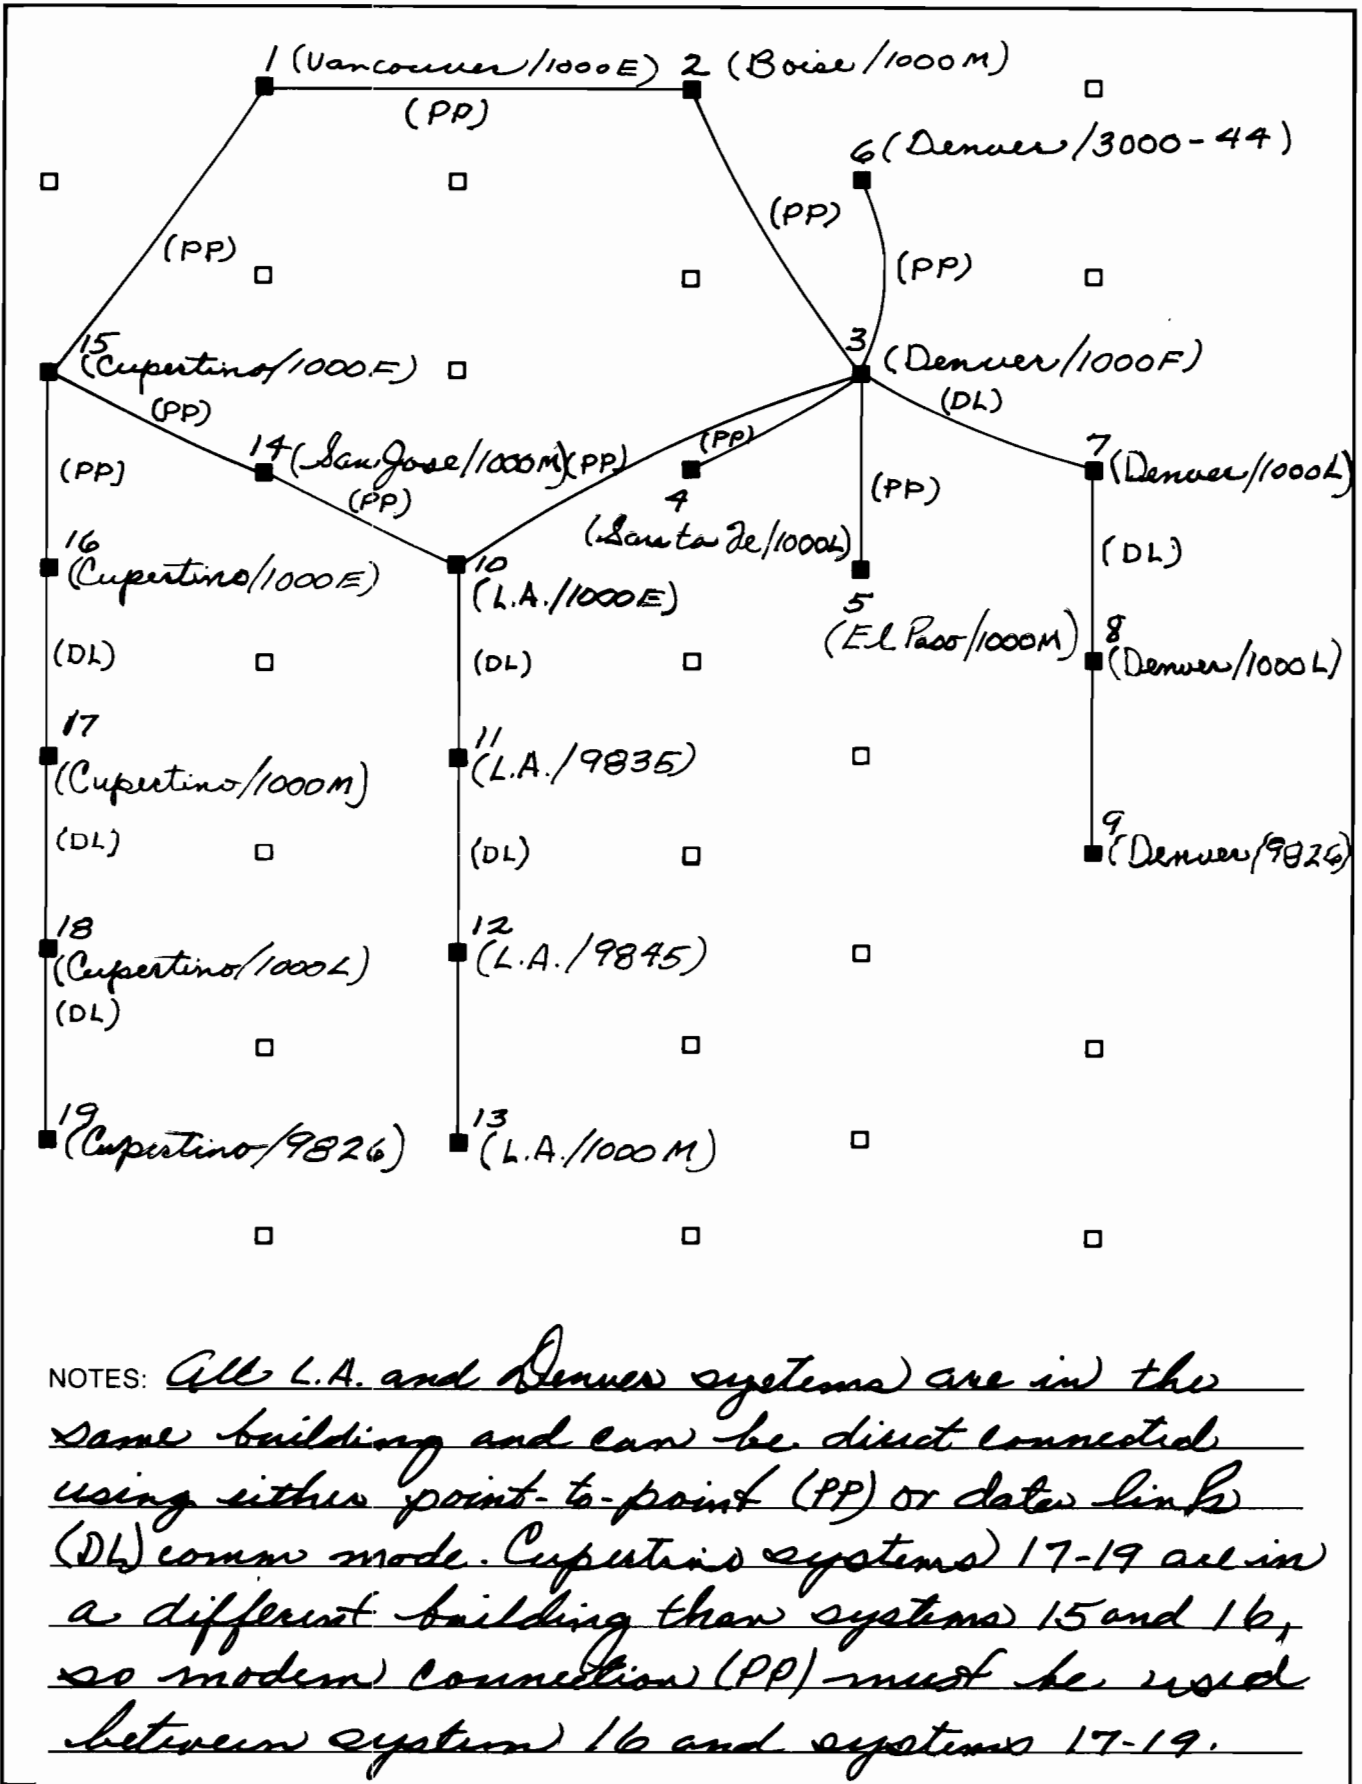 1 (Vancouver/1000E) 2 (Boise/1000M)
(PP)
6 (Denver/3000-44)
(PP)
(PP)
(PP)
15
(Cupertino/1000F)
3
(Denver/1000F)
(PP)
(DL)
14 (San Jose/1000M) (PP)
(PP)
7
(Denver/1000L)
(PP]
(PP)
4
(PP)
(Santa Fe/1000L)
(DL)
16
(Cupertino/1000E)
10
(L.A./1000E)
5
(El Paso/1000M)
8
(Denver/1000L)
(DL)
(DL)
17
(Cupertino/1000M)
11
(L.A./9835)
(DL)
(DL)
9
(Denver/9826)
18
(Cupertino/1000L)
12
(L.A./9845)
(DL)
19
(Cupertino/9826)
13
(L.A./1000M)
NOTES: All L.A. and Denver systems are in the
same building and can be direct connected
using either point-to-point (PP) or data link
(DL) comm mode. Cupertino systems 17-19 are in
a different building than systems 15 and 16,
so modem connection (PP) must be used
between system 16 and systems 17-19.